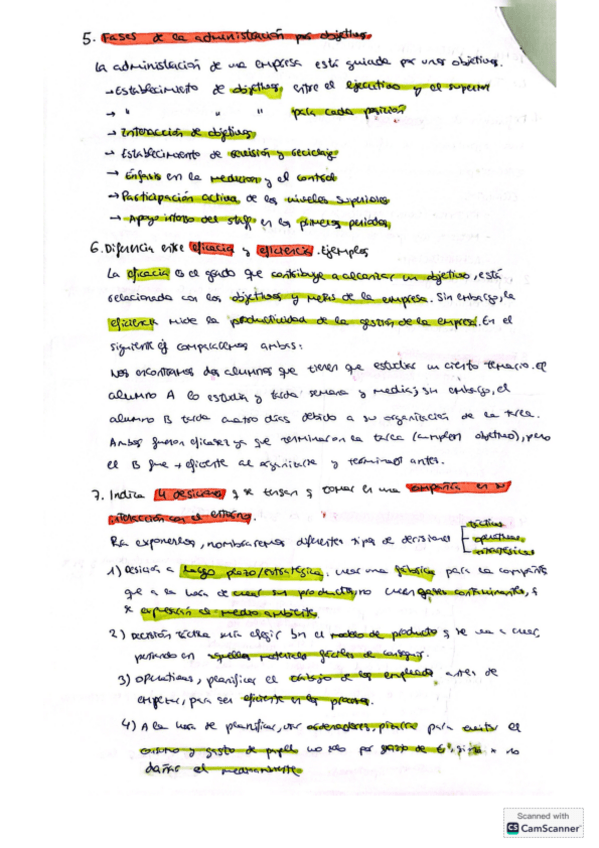 5. Fases de la administración por objetivos.
La administración de una empresa está guiada por unos objetivos.
→ Establecimiento de objetivos entre el ejecutivo y el superior
→ " " " para cada posición
→ Interacción de objetivos
→ Establecimiento de revisión y reciclaje
→ Énfasis en la medición y el control
→ Participación activa de los niveles superiores
→ Apoyo intenso del staff en los primeros periodos
6. Diferencia entre eficacia y eficiencia. Ejemplos
La eficacia es el grado que contribuye a alcanzar un objetivo, está
relacionada con los objetivos y metas de la empresa. Sin embargo, la
eficiencia mide la productividad de la gestión de la empresa. En el
siguiente ej comparamos ambas:
Nos encontramos dos alumnos que tienen que estudiar un cierto temario. El
alumno A lo estudia y tarda semana y media; sin embargo, el
alumno B tarda cuatro días debido a su organización de la tarea.
Ambos fueron eficaces ya que terminaron la tarea (cumplen objetivo), pero
el B fue + eficiente al organizarse y terminar antes.
7. Indica 4 decisiones q se tengan q tomar en una compañía en su
interacción con el entorno.
Pa exponerlos, nombraremos diferentes tipos de decisiones
tácticas
operativas
estratégicas
1) Decisión a largo plazo/estratégica, crear una fábrica para la compañía
que a la hora de crear sus productos no creen gases contaminantes, q
x empeoran el medio ambiente.
2) Decisión táctica sería elegir bn el modelo de producto q se va a crear,
pensando en aquellos materiales fáciles de conseguir.
3) Operativas, planificar el trabajo de los empleados antes de
empezar, para ser eficiente en los procesos.
4) A la hora de planificar, usar ordenadores, pizarra para evitar el
y gasto de papel no solo por gasto de € sino x no
dañar el medioambiente
Scanned with
CS CamScanner